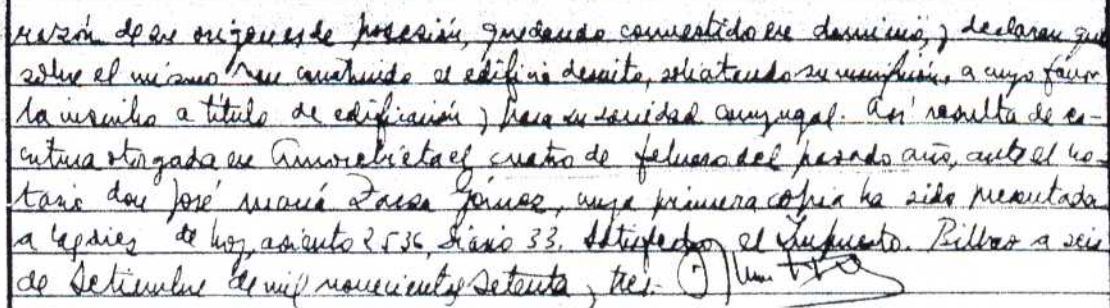 razón de sus orígenes de posesión, quedando convertido en dominio, y declaran que
sobre el mismo han construido el edificio descrito, solicitando su inscripción, a cuyo favor
la inscribo a título de edificación y para su sociedad conyugal. Así resulta de es-
critura otorgada en Amorebieta el cuatro de febrero del pasado año, ante el no-
tario don José María Gómez, cuya primera copia ha sido presentada
a las diez de hoy, asiento 2536, Diario 33. Satisfecho el Impuesto. Bilbao a seis
de Setiembre de mil novecientos setenta y tres.